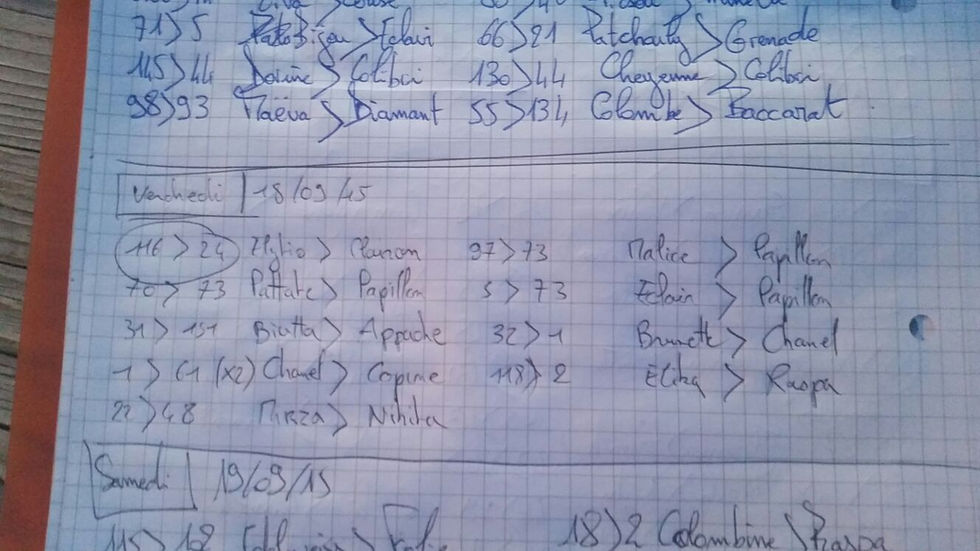 71>5 > Eclair 66>21 Patchouly > Grenade
115>44 > Colibri 130>44 Cheyenne > Colibri
98>93 Maëva > Diamant 55>134 Colombe > Baccarat
Vendredi 18/09/15
116 > 24 > 97>73 Malice > Papillon
70> 73 Pattate > Papillon 5 > 73 Eclair > Papillon
31> 151 Biatta > Appache 32>1 > Chanel
1 > 61 (x2) Chanel > Copine 118> 2 > Raspa
22 >48 Mirza > Nikita
Samedi 19/09/15
115> 18 > 18>2 Colombine > Raspa